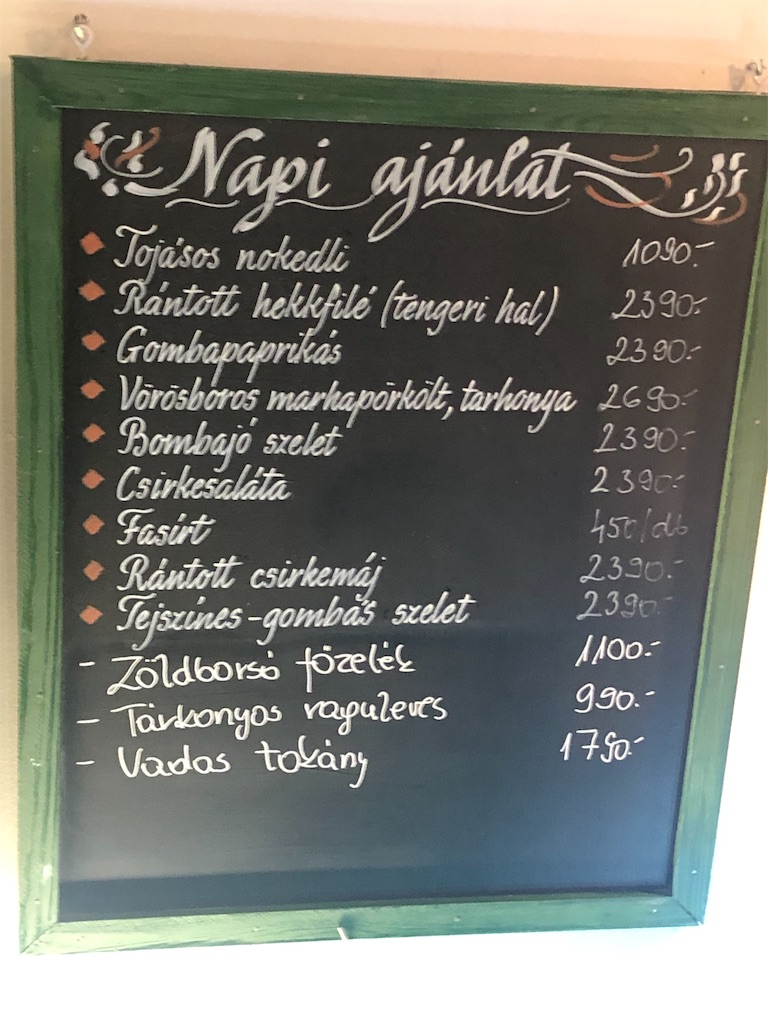 Napi ajánlat
Tojásos nokedli 1090.-
Rántott hekkfilé (tengeri hal) 2390.-
Gombapaprikás 2390.-
Vörösboros marhapörkölt, tarhonya 2690.-
Bombajó szelet 2390.-
Csirkesaláta 2390.-
Fasírt 450/db
Rántott csirkemáj 2390.-
Tejszínes-gombás szelet 2390.-
- Zöldborsó főzelék 1100.-
- Tárkonyos raguleves 990.-
- Vadas tokány 1790.-